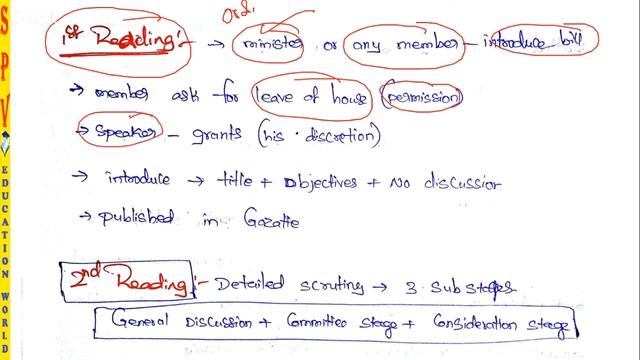 Ord.
1st Reading :- → minister or any member - introduce bill
→ member ask for leave of house (permission)
→ Speaker - grants (his discretion)
→ introduce → title + Objectives + No discussion
→ published in Gazatte
2nd Reading :- Detailed scruting → 3 Sub stages
General Discussion + Committee stage + Consideration stage
SPV EDUCATION WORLD